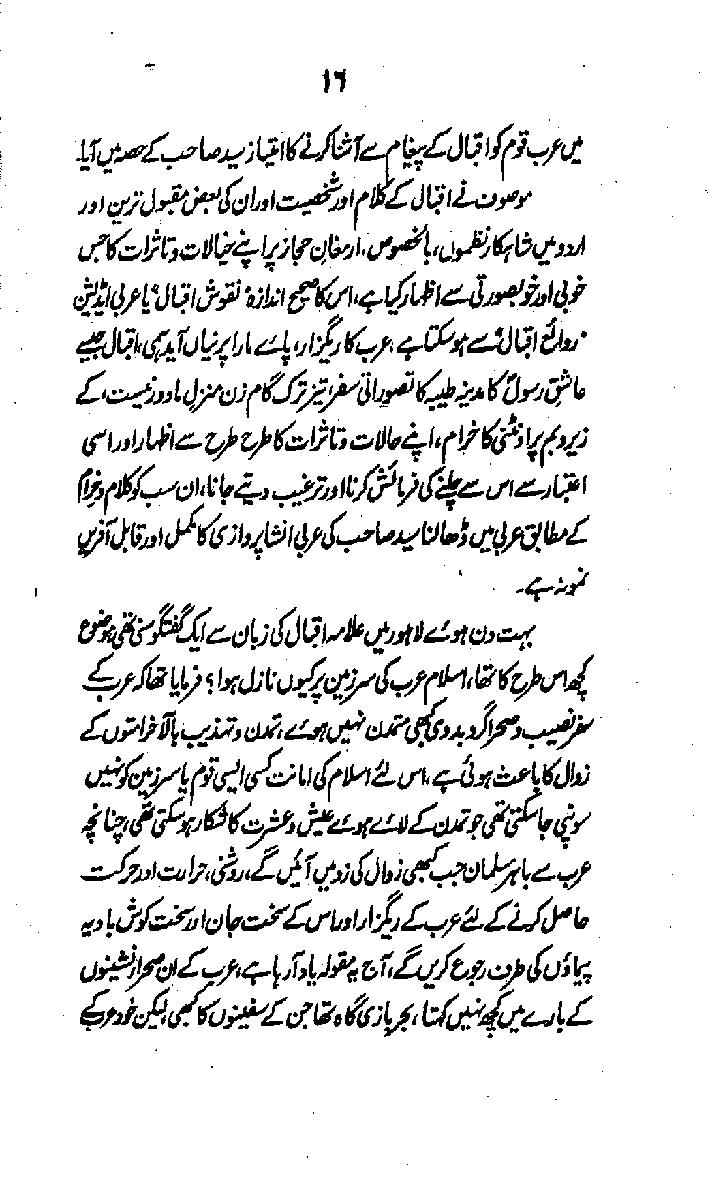 ١٦
میں عرب قوم کو اقبال کے پیغام سے آشنا کرنے کا امتیاز سید صاحب کے حصہ میں آیا۔
موصوف نے اقبال کے کلام اور شخصیت اور ان کی بعض مقبول ترین اور
اردو میں شاہکار نظموں، بالخصوص، ارمغانِ حجاز پر اپنے خیالات و تاثرات کا جس
خوبی اور خوبصورتی سے اظہار کیا ہے، اس کا صحیح اندازہ نقوش اقبال یا عربی ایڈیشن
روائع اقبال سے ہو سکتا ہے، عرب کا ریگزار، پائے مارا پرنیاں آید ہمی، اقبال جیسے
عاشق رسولؐ کا مدینہ طیبہ کا تصوراتی سفر، تیز ترک گام زن منزل ما دور نیست، کے
زیر و بم پر اونٹنی کا خرام، اپنے حالات و تاثرات کا طرح طرح سے اظہار اور اسی
اعتبار سے اس سے چلنے کی فرمائش کرنا اور ترغیب دیتے جانا، ان سب کو کلام و خرام
کے مطابق عربی میں ڈھالنا سید صاحب کی عربی انشا پردازی کا مکمل اور قابل آفریں
نمونہ ہے۔
بہت دن ہوئے لاہور میں علامہ اقبال کی زبان سے ایک گفتگو سنی تھی، موضوع
کچھ اس طرح کا تھا، اسلام عرب کی سرزمین پر کیوں نازل ہوا؟ فرمایا تھا کہ عرب کے
سفر نصیب و صحرا گرد بدوی کبھی متمدن نہیں ہوئے، تمدن و تہذیب بالآخر امتوں کے
زوال کا باعث ہوئی ہے، اس لئے اسلام کی امانت کسی ایسی قوم یا سرزمین کو نہیں
سونپی جا سکتی تھی جو تمدن کے لائے ہوئے عیش و عشرت کا شکار ہو سکتی تھی، چنانچہ
عرب سے باہر مسلمان جب کبھی زوال کی زد میں آئیں گے، روشنی، حرارت اور حرکت
حاصل کرنے کے لئے عرب کے ریگزار اور اس کے سخت جان اور سخت کوش بادیہ
پیماؤں کی طرف رجوع کریں گے، آج یہ مقولہ یاد آ رہا ہے، عرب کے ان صحرا نشینوں
کے بارے میں کچھ نہیں کہتا، بحر بازی گاہ تھا جن کے سفینوں کا کبھی، لیکن خود عرب کے